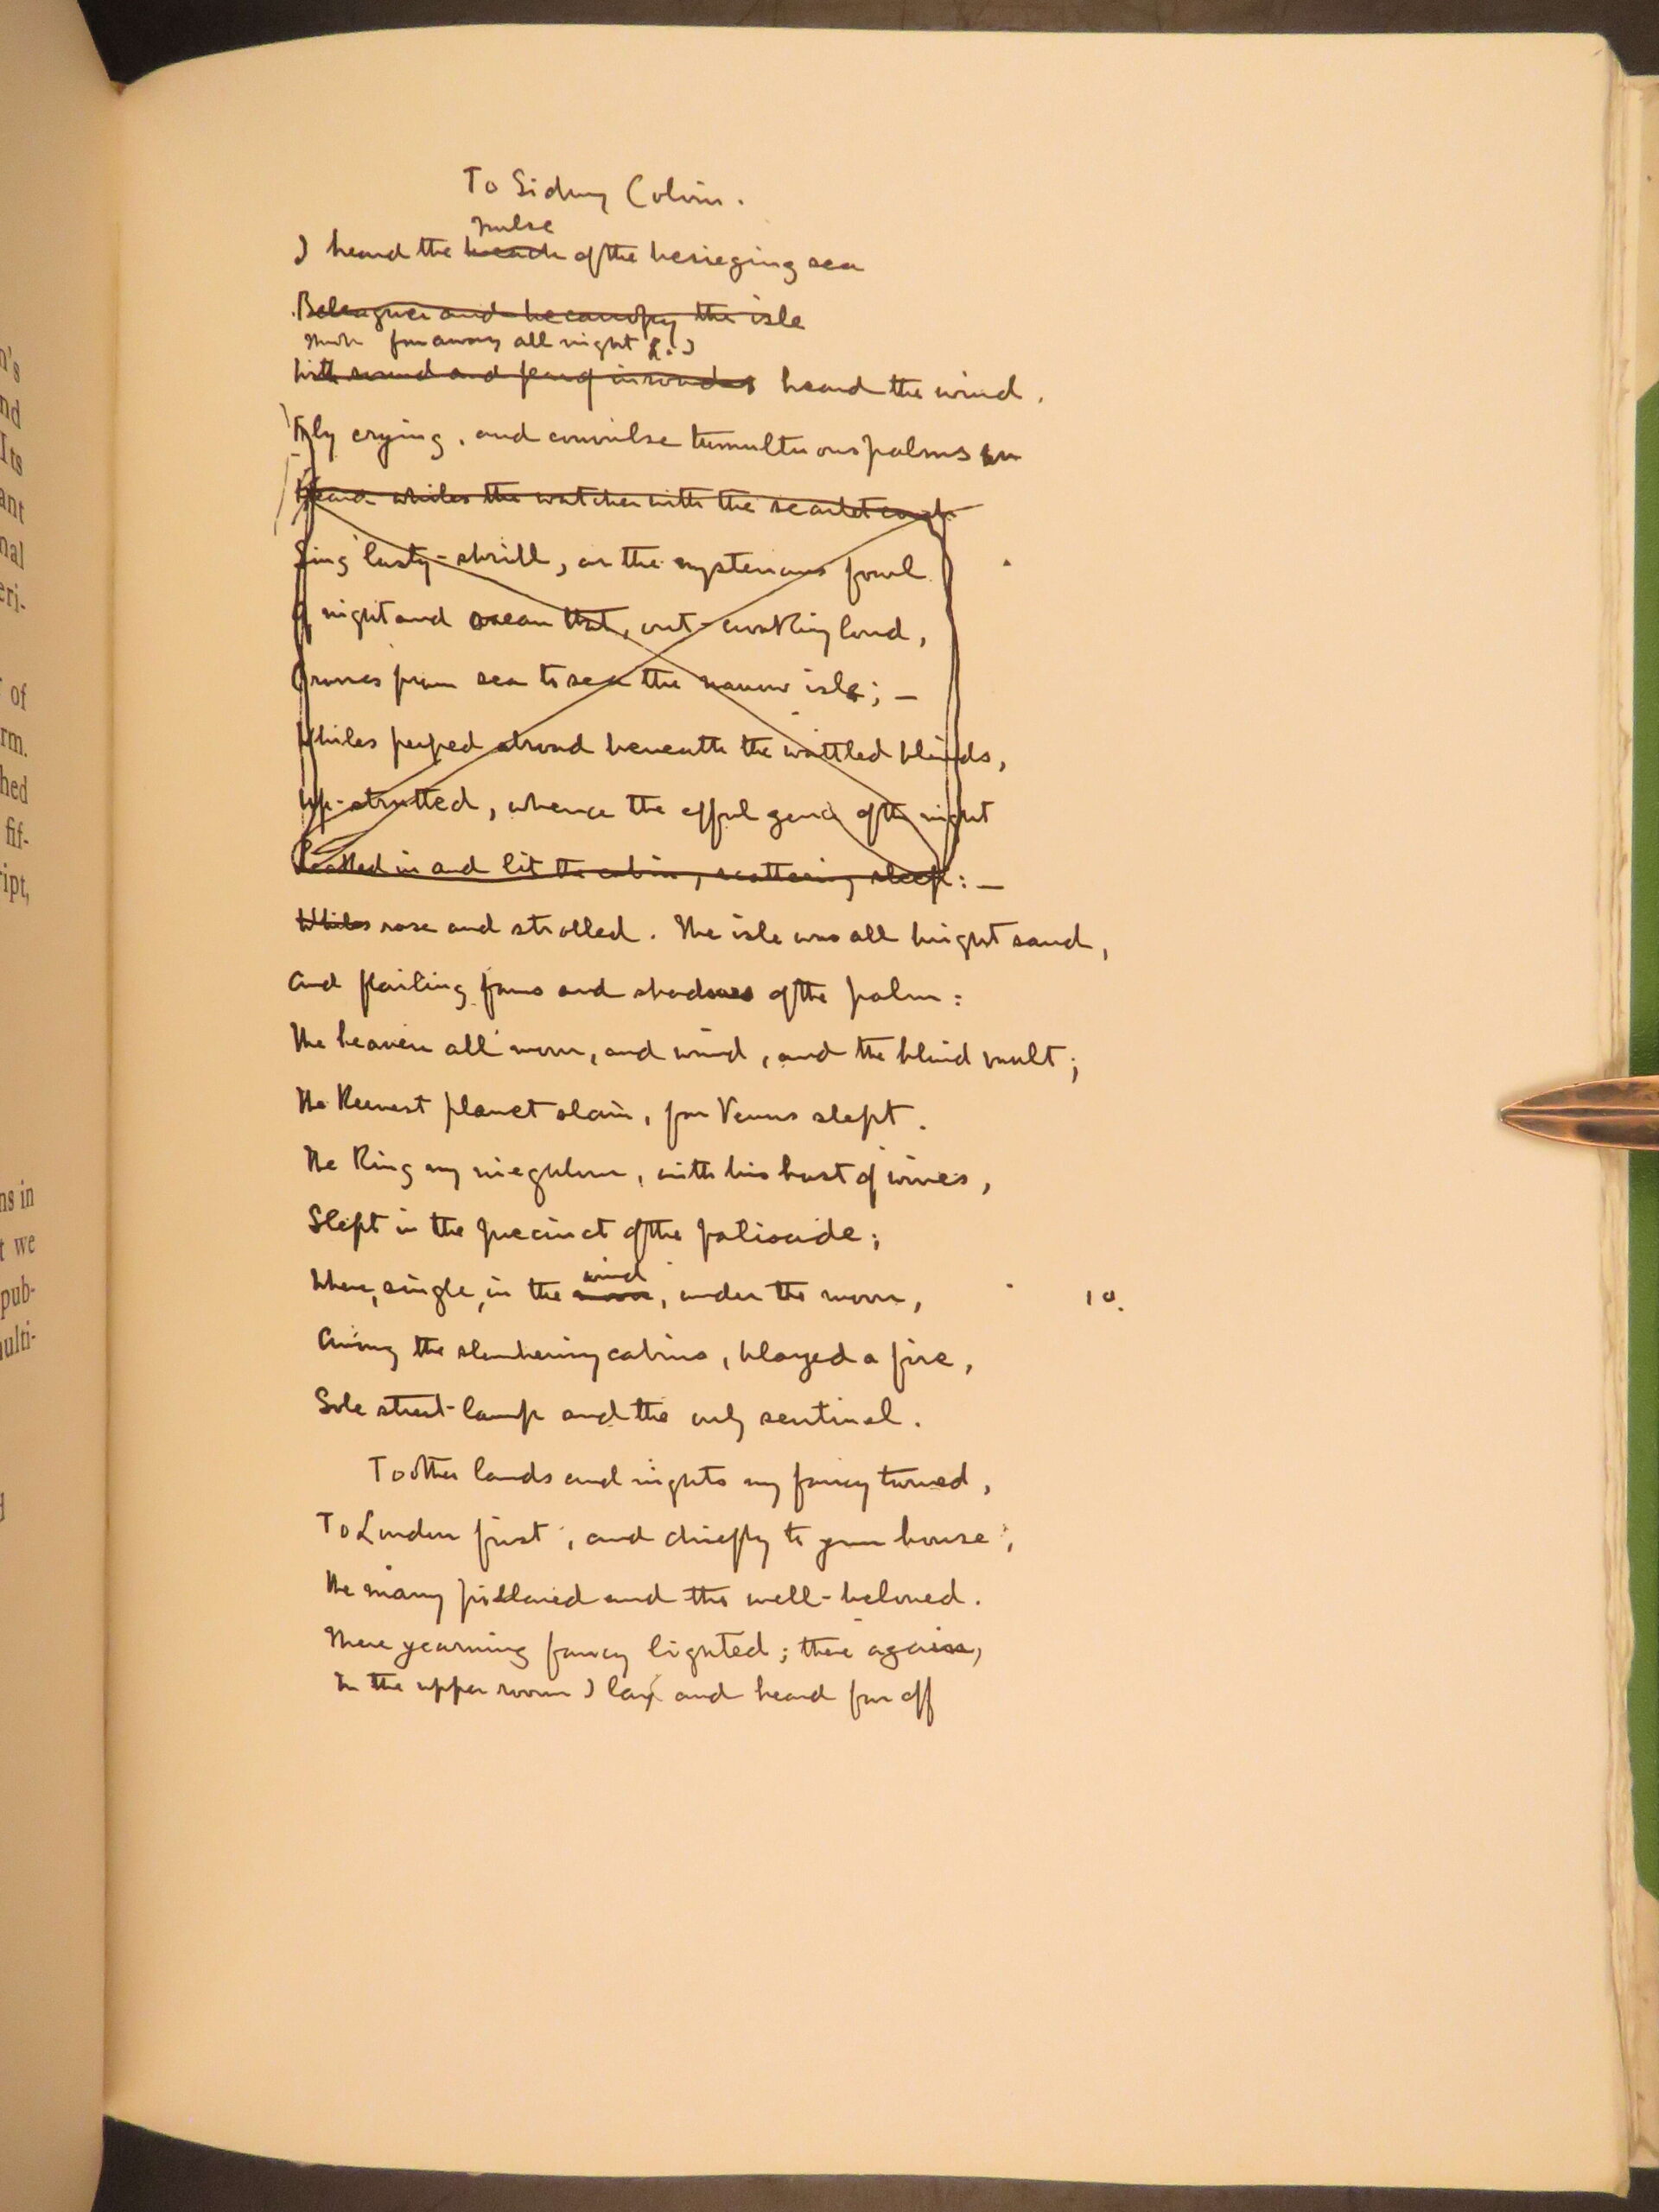 n's
nd
Its
ant
nal
eri-
of
rm.
hed
fif-
ript,
ns in
t we
pub-
ulti-
To Sidney Colvin.
pulse
I heard the beach of the besieging sea
Beleaguer and becanopy the isle
Throb far away all night (.I)
With sound and of inroads heard the wind.
Fly crying, and convulse tumultuous palms
Heard whiles the watcher with the scarlet
Sing lusty-shrill, or the mysterious fowl
Of night and ocean that, out-croaking loud,
Crosses from sea to sea the narrow isle; —
Whiles peeped abroad beneath the wattled blinds,
Up-strutted, whence the effulgence of the night
Looked in and lit the cabin, scattering sleep: —
Whiles rose and strolled. The isle was all bright sand,
And flailing fans and shadows of the palm:
The heaven all moon, and wind, and the blind vault;
The keenest planet slain, for Venus slept.
The King my neighbour, with his host of wives,
Slept in the precinct of the palisade;
wind
Where, single, in the moon, under the moon,
10.
Among the slumbering cabins, blazed a fire,
Sole street-lamp and the only sentinel.
To other lands and nights my fancy turned,
To London first, and chiefly to your house,
The many pillared and the well-beloved.
There yearning fancy lighted; there again,
In the upper room I lay and heard far off